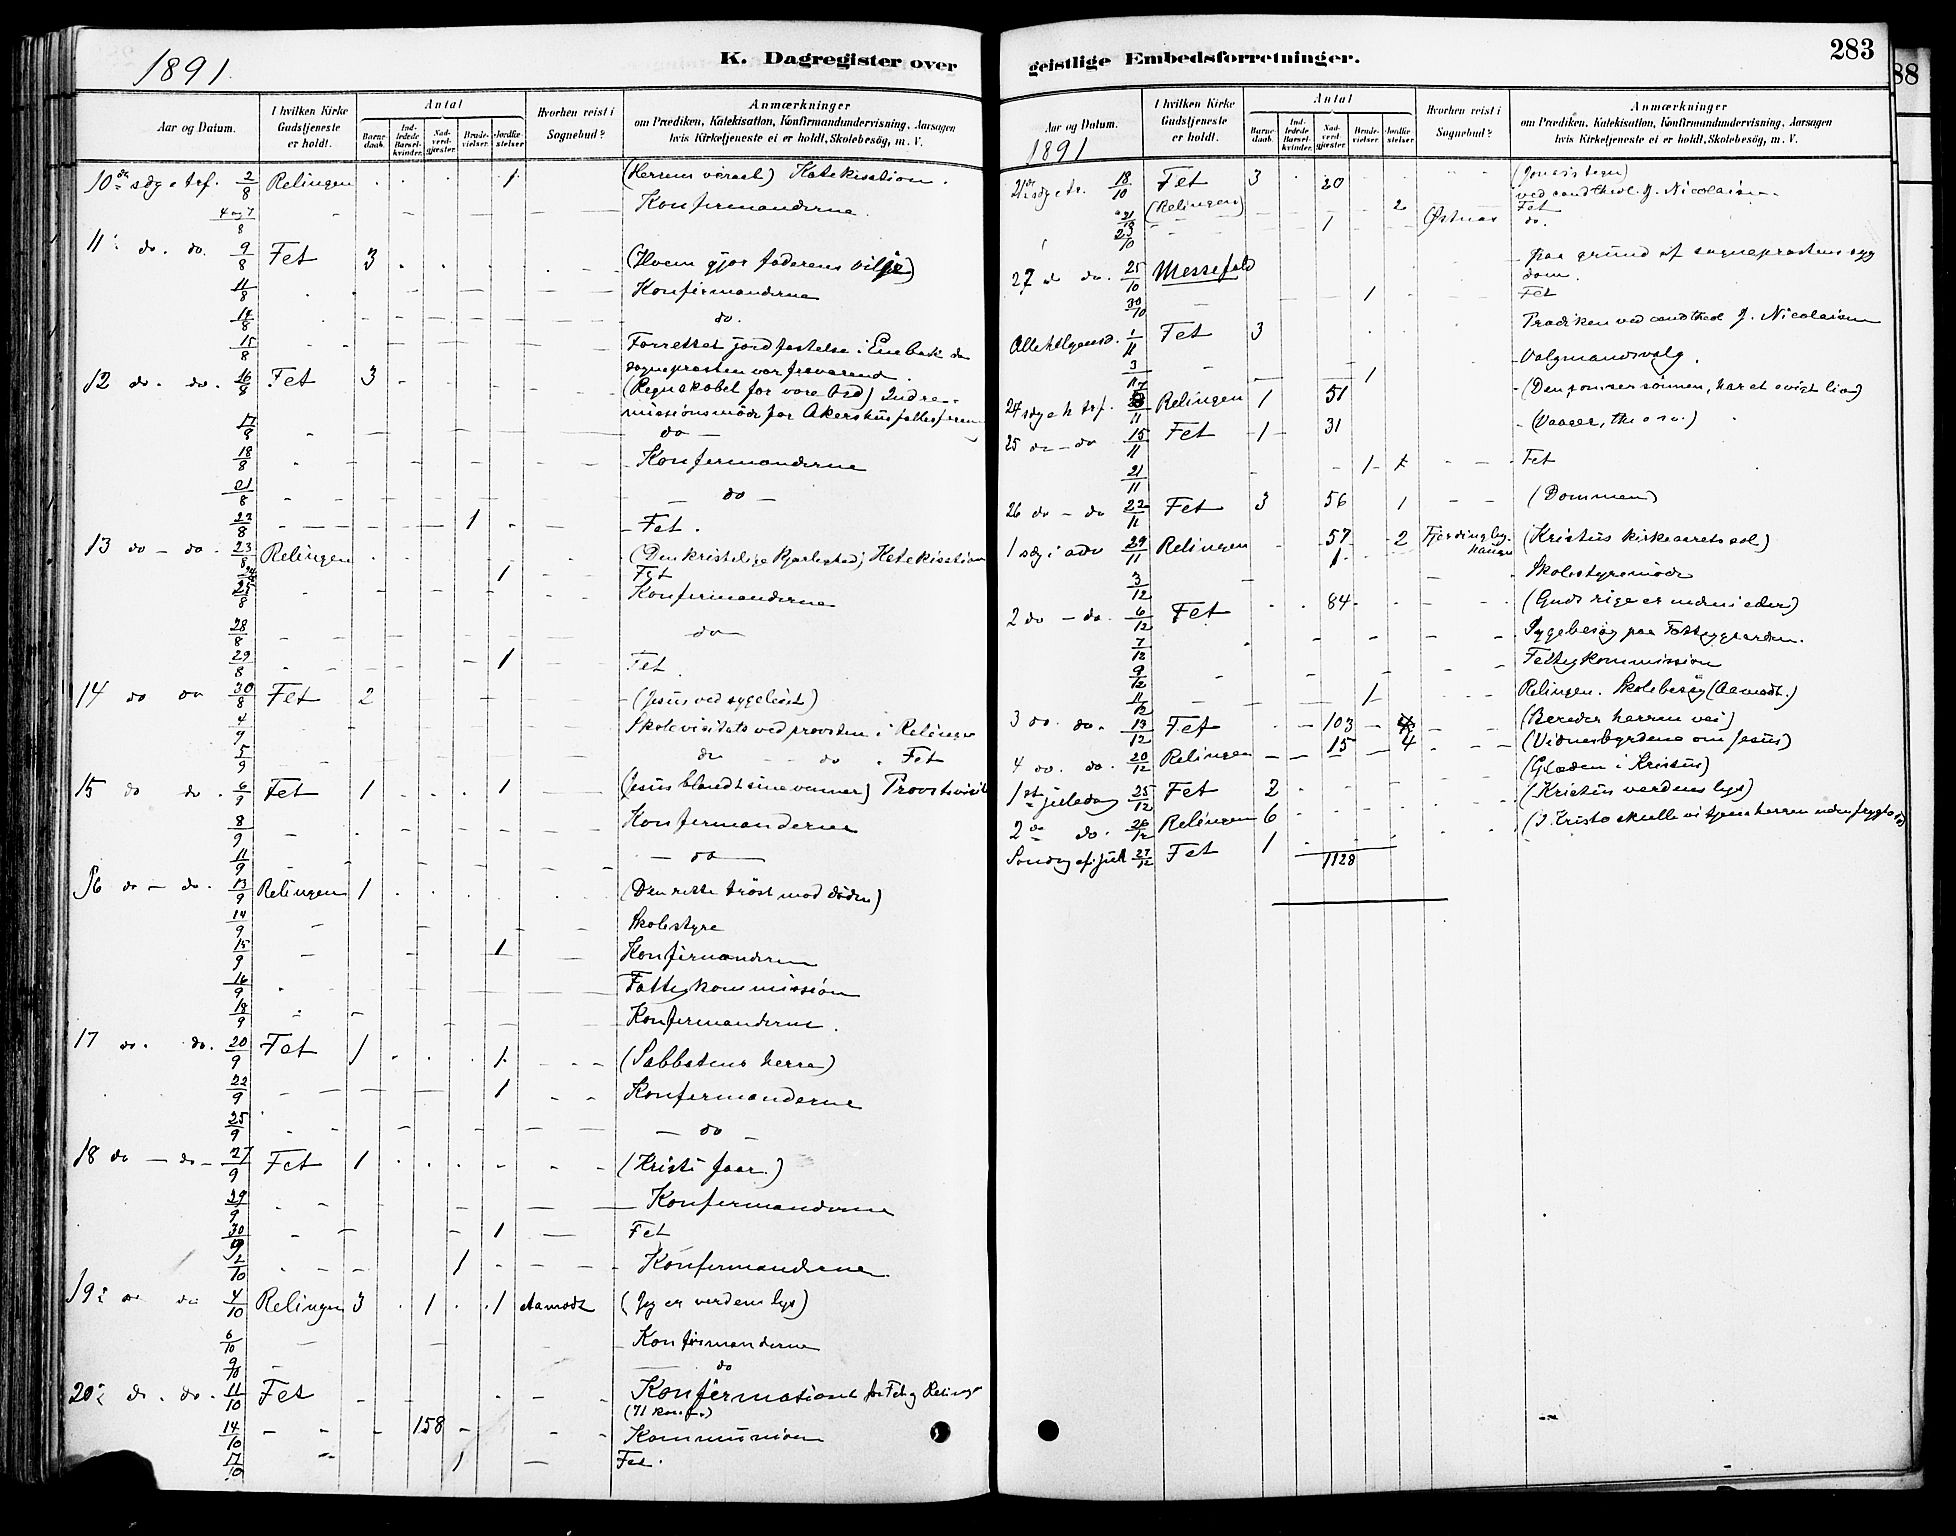 1891.
K. Dagregister over
Aar og Datum.
I hvilken Kirke Gudstjeneste er holdt.
Antal
Barne-daab.
Ind-ledede Barsel-kvinder.
Nad-verd-gjester.
Brude-vielser.
Jordfæ-stelser.
Hvorhen reist i Sognebud?
Anmærkninger
om Prædiken, Katekisation, Konfirmandundervisning, Aarsagen
hvis Kirketjeneste ei er holdt, Skolebesög, m. V.
10de 2/8 Relingen 1 Katekisation.
4 og 7/8 Konfirmanderne.
11 do. do. 9/8 Fet 3 (Hvem gjør faderens vilje)
11/8 Konfirmanderne
14/8 do.
15/8 Forrettet jordfæstelse i Enebak da
sognepresten var fraværend.
12 do. do. 16/8 Fet 3 (Regnskabet for vore ord) Indre-
missionsmöde for Akershus
17/8 do
18/8 Konfirmanderne
21/8 do
22/8 1 Fet.
13 do do. 23/8 Relingen (Den kristelige kjærlighed) Katekisation
24/8 1 Fet
25/8 Konfirmanderne
28/8 do
29/8 1 Fet.
14 do do 30/8 Fet 2 (Jesus ved sygeleiet)
4/9 Skolevisitats ved provsten i Relingen
5/9 do do Fet
15 do do. 6/9 Fet 1 1 (Jesus blandt sine venner) Provstvisit
8/9 Konfirmanderne
11/9 do
16 do do. 13/9 Relingen 1 (Den rette tröst mod döden)
14/9 Skolestyre
15/9 1 Konfirmanderne
16/9 Fattigkommission
18/9 Konfirmanderne.
17 do. do. 20/9 Fet 1 1 (Sabbatens herre)
22/9 1 Konfirmanderne
25/9 do
18 do do 27/9 Fet 1 (Kristi faar.)
29/9 Konfirmanderne
30/9 1 Fet
2/10 1 Konfirmanderne.
19 do do 4/10 Relingen 3 1 1 Aamodt (Jeg er verdens lys)
6/10 Konfirmanderne
9/10 do
20 do. do. 11/10 Fet Konfirmationen for Fet og Relingen
(71 konf.)
14/10 158 Kommunion
17/10 1 Fet.
geistlige Embedsforretninger.
283
88
Aar og Datum.
I hvilken Kirke Gudstjeneste er holdt.
Antal
Barne-daab.
Ind-ledede Barsel-kvinder.
Nad-verd-gjester.
Brude-vielser.
Jordfæ-stelser.
Hvorhen reist i Sognebud?
Anmærkninger
om Prædiken, Katekisation, Konfirmandundervisning, Aarsagen
hvis Kirketjeneste ei er holdt, Skolebesög, m. V.
1891
21 18/10 Fet 3 20 (Jonas's tegn)
ved cand theol. J. Nicolaisen.
21/10 (Relingen) 2 Fet
23/10 1 Østnes do.
25/10 Messefald paa grund af sogneprestens syg
dom.
30/10 1 Fet
Allehelgensd. 1/11 Fet 3 Prædiken ved cand theol J. Nicolaisen
3/11 Valgmandsvalg.
24 Relingen 1 51 (Den, som ser sönnen, har et evigt liv)
25 do do 15/11 Fet 1 31
21/11 1 1 Fet
26 do do 22/11 Fet 3 56 1 (Dommen)
1 29/11 Relingen 57 2 Fjerdingby- (Kristus kirkeaarets sol)
haugen
3/12 Skolestyremöde
2 do do. 6/12 Fet 84 (Guds rige er inden i eder)
7/12 Sygebesög paa Fattiggaarden.
9/12 Fattigkommission
11/12 1 Relingen. Skolebesög (Aamodt.)
3 do. do. 13/12 Fet 103 (Bereder herrens vei)
4 do. do. 20/12 Relingen 15 4 (Vidnesbyrdene om Jesus)
(Glæden i Kristus)
1st juledag 25/12 Fet 2 (Kristus verdens lys)
2de do. 26/12 Relingen 6 (I Kristo skulle vi tjene herren uden frygt)
Sondag ef. jul 27/12 Fet 1
1128